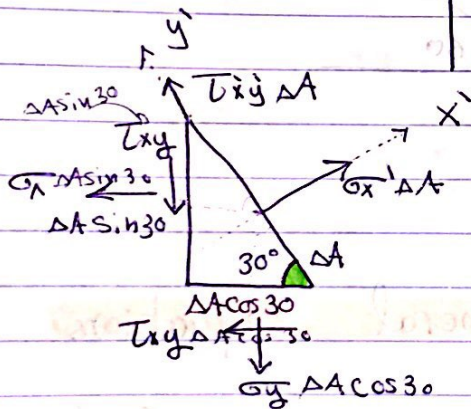 y`
τx`y` ΔA
ΔA sin 30
x`
τxy
σx ΔA sin 30
σx` ΔA
ΔA Sin 30
30° ΔA
ΔA cos 30
τxy ΔA cos 30
σy ΔA cos 30